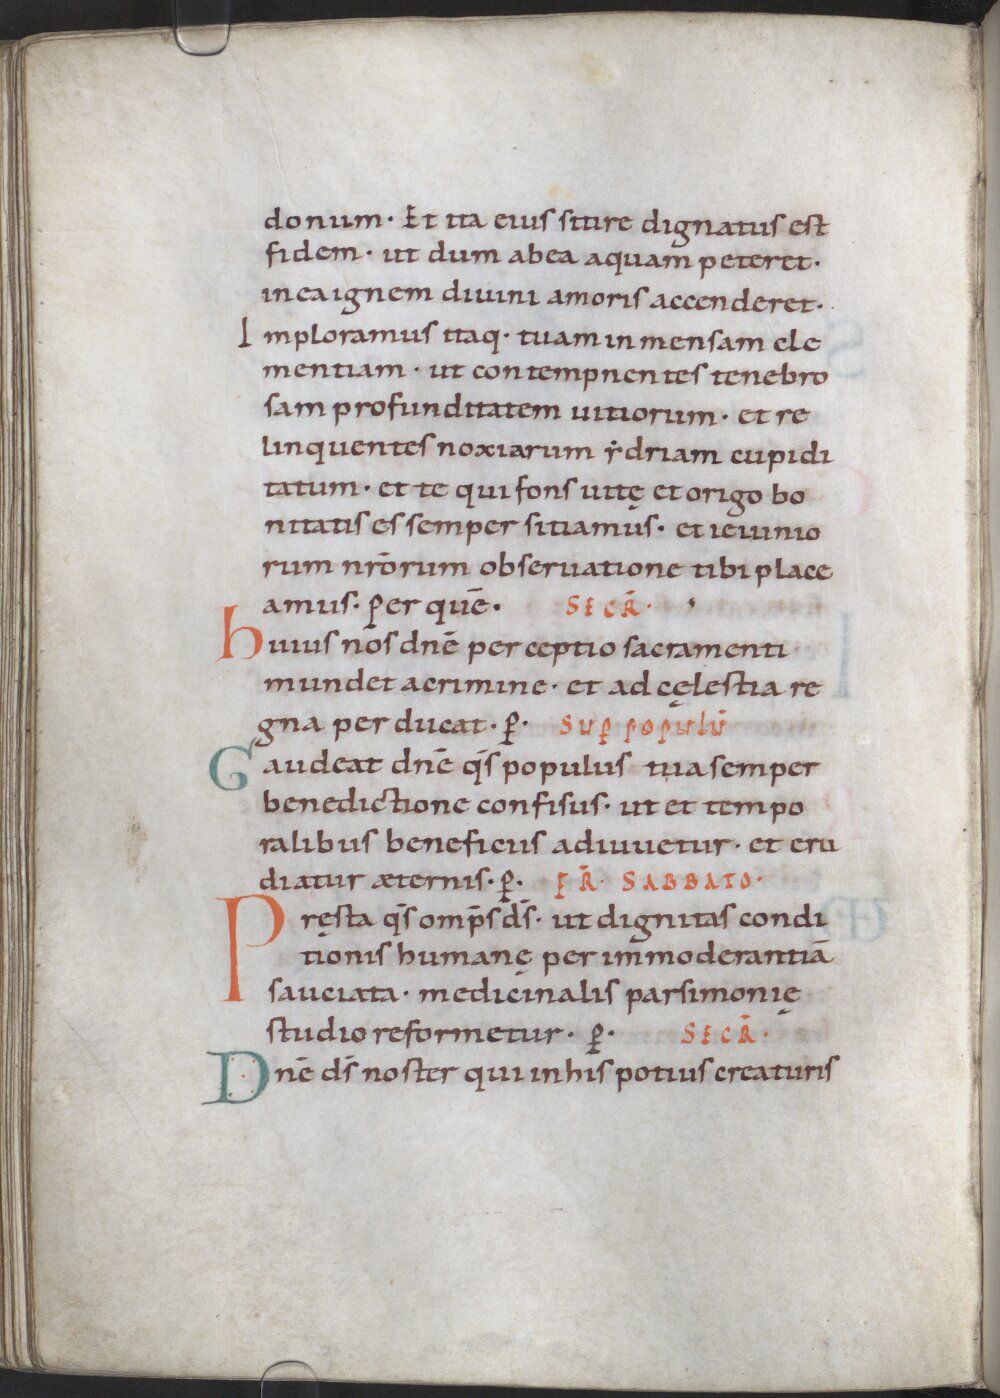 donum· Et ita eius sitire dignatus est
fidem· ut dum abea aquam peteret·
in ea ignem diuini amoris accenderet·
Imploramus itaq· tuam inmensam cle
mentiam· ut contempnentes tenebro
sam profunditatem uitiorum· et re
linquentes noxiarum ẏdriam cupidi
tatum· et te qui fons uitę et origo bo
nitatis es semper sitiamus· et ieiunio
rum nr̄orum obseruatione tibi place
amus· Per quē· SECR̄·
huius nos dnē perceptio sacramenti
mundet a crimine· et ad cęlestia re
gna perducat· ꝑ· Suꝑ populū
Gaudeat dnē qs̄ populus tua semper
benedictione confisus· ut et tempo
ralibus beneficiis adiuuetur· et eru
diatur æternis· ꝑ· FR̄· SABBATO·
Pręsta qs̄ omp̄s ds̄· ut dignitas condi
tionis humanę per inmoderantiā
sauciata· medicinalis parsimonię
studio reformetur· ꝑ· SECR̄·
Dnē ds̄ noster qui in his potius creaturis